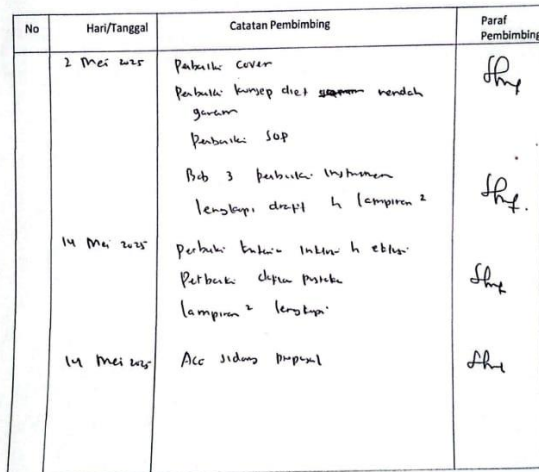 No Hari/Tanggal Catatan Pembimbing Paraf Pembimbing
2 Mei 2025 Perbaiki cover
Perbaiki konsep diet rendah
garam
Perbaiki SOP
Bab 3 perbaiki instrumen
lengkapi draft lampiran²
14 Mei 2025 Perbaiki kriteria inklusi eklusi
Perbaiki daftar pustaka
lampiran² lengkapi
14 Mei 2025 Acc sidang proposal